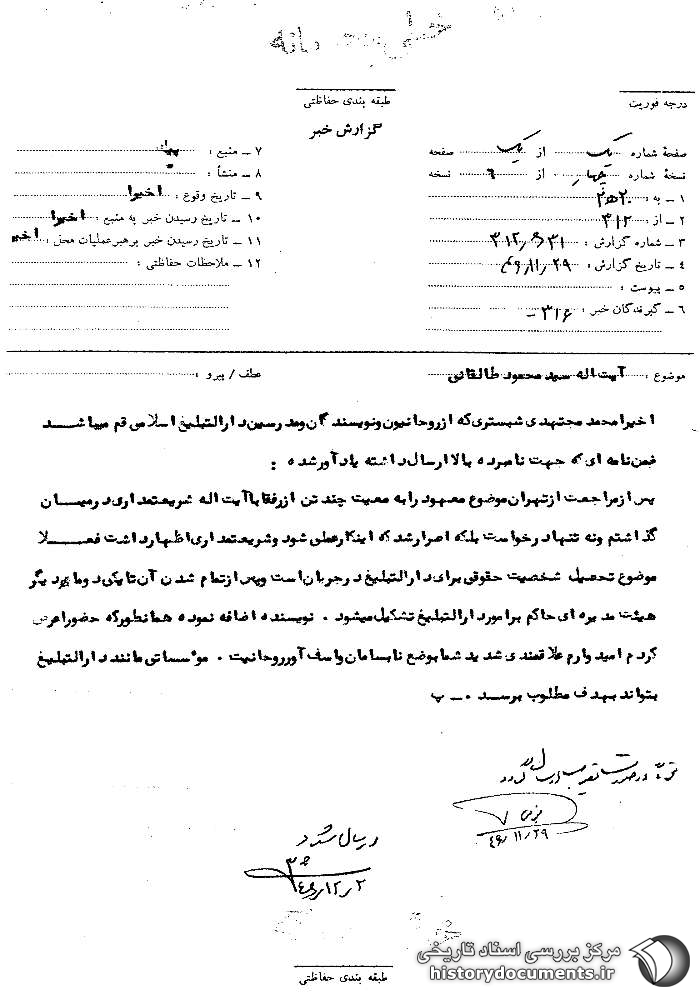 خیلی محرمانه
درجه فوریت
طبقه بندی حفاظتی
گزارش خبر
صفحهٔ شماره یک از یک صفحه
نسخهٔ شماره چهار از ۶ نسخه
۱ ــ به : ۲۰ ه‍ ۲
۲ ــ از : ۳۱۲
۳ ــ شماره گزارش :
۴ ــ تاریخ گزارش : ۴۶/۱۱/۲۹
۵ ــ پیوست :
۶ ــ گیرندگان خبر : ۳۱۶ ــ
۷ ــ منبع :
۸ ــ منشأ :
۹ ــ تاریخ وقوع : اخیرا
۱۰ ــ تاریخ رسیدن خبر به منبع : اخیرا
۱۱ ــ تاریخ رسیدن خبر برهبر عملیات محل : اخیر
۱۲ ــ ملاحظات حفاظتی :
موضوع : آیت اله سید محمود طالقانی
عطف / پیرو :
اخیرا محمد مجتهدی شبستری که از روحانیون و نویسندگان و مدرسین دارالتبلیغ اسلامی قم میباشد
ضمن نامه ای که جهت نامبرده بالا ارسال داشته یادآور شده :
پس از مراجعت از تهران موضوع معهود را به معیت چند تن از رفقا با آیت اله شریعتمداری در میان
گذاشتم و نه تنها درخواست بلکه اصرار شد که اینکار عملی شود و شریعتمداری اظهار داشت فعلا
موضوع تحصیل شخصیت حقوقی برای دارالتبلیغ در جریان است و پس از تمام شدن آن تا یکی دو ماه دیگر
هیئت مدیره ای حاکم بر امور دارالتبلیغ تشکیل میشود . نویسنده اضافه نموده همانطور که حضورا عرض
کردم امیدوارم علاقمندی شدید شما بوضع نابسامان و اسف آور روحانیت . مؤسساتی مانند دارالتبلیغ
بتواند بهدف مطلوب برسد . ــ پ
۴۶/۱۱/۲۹
ارسال شد
۴۶/۱۲/۲
طبقه بندی حفاظتی
مرکز بررسی اسناد تاریخی
historydocuments.ir